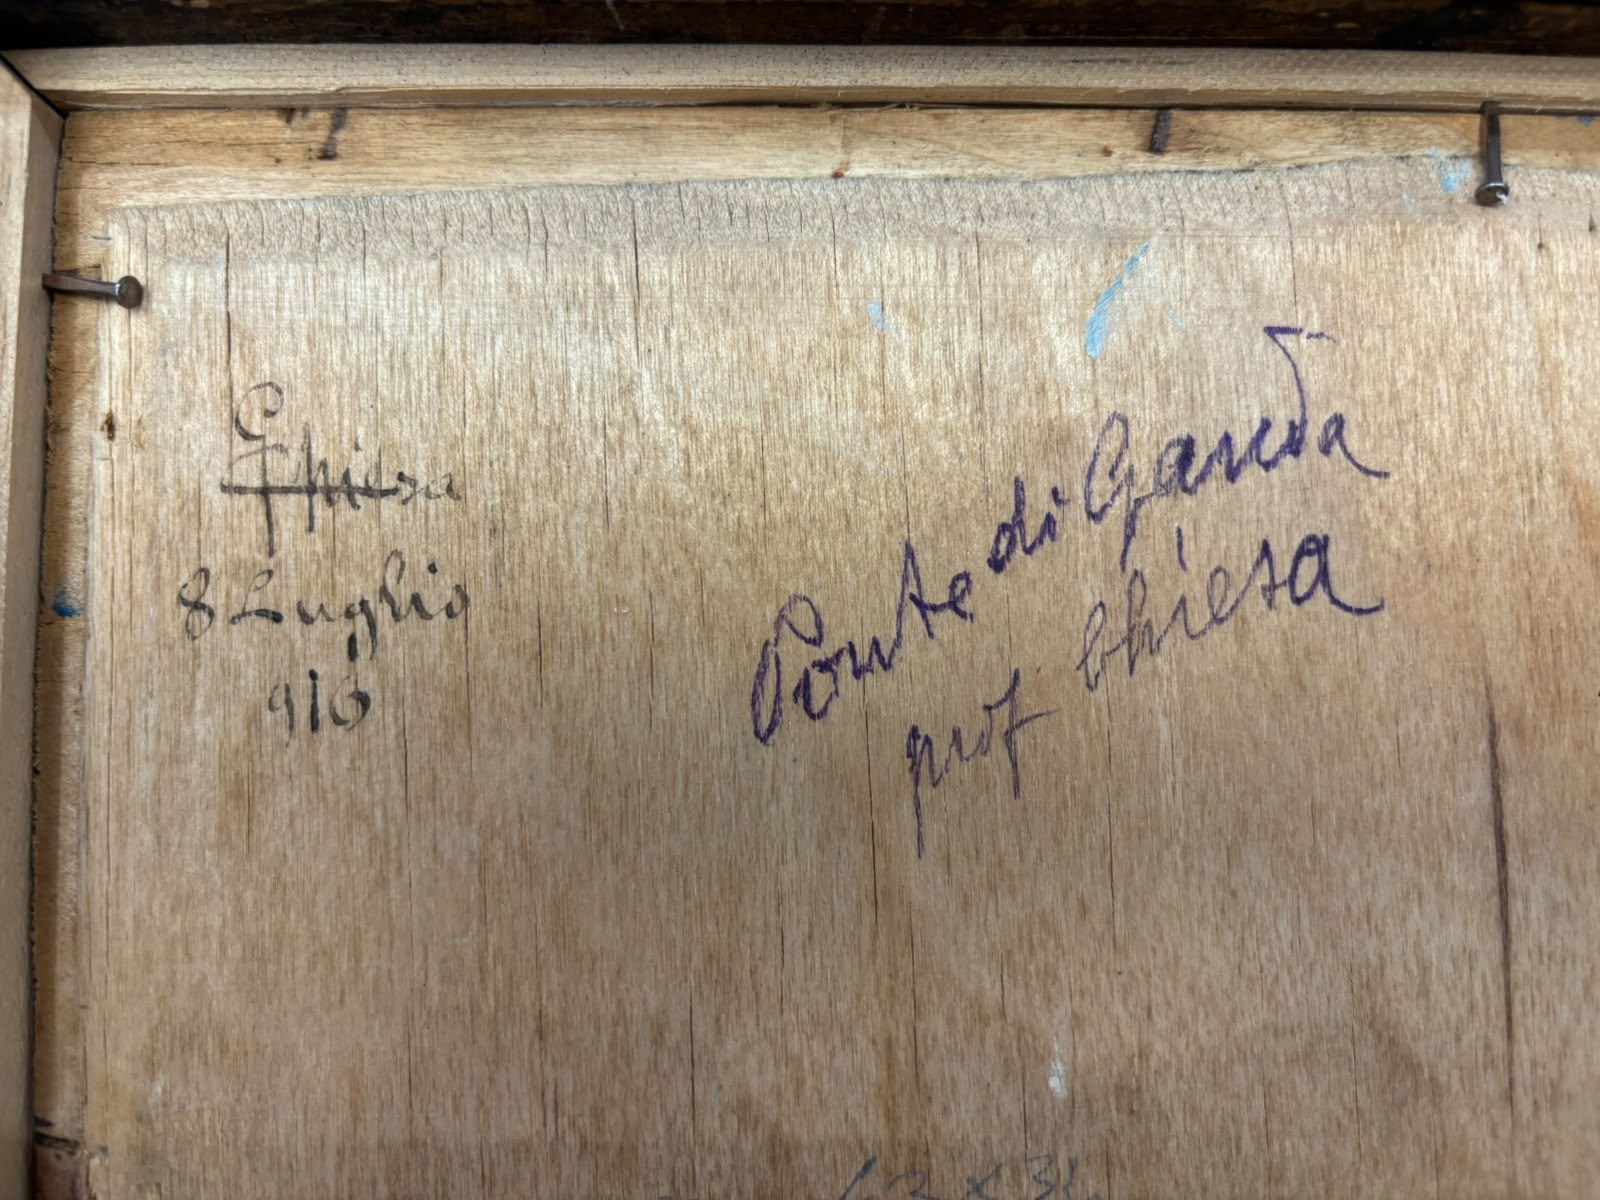 GChiesa
8 Luglio
916
Ponte di Garda
prof Chiesa